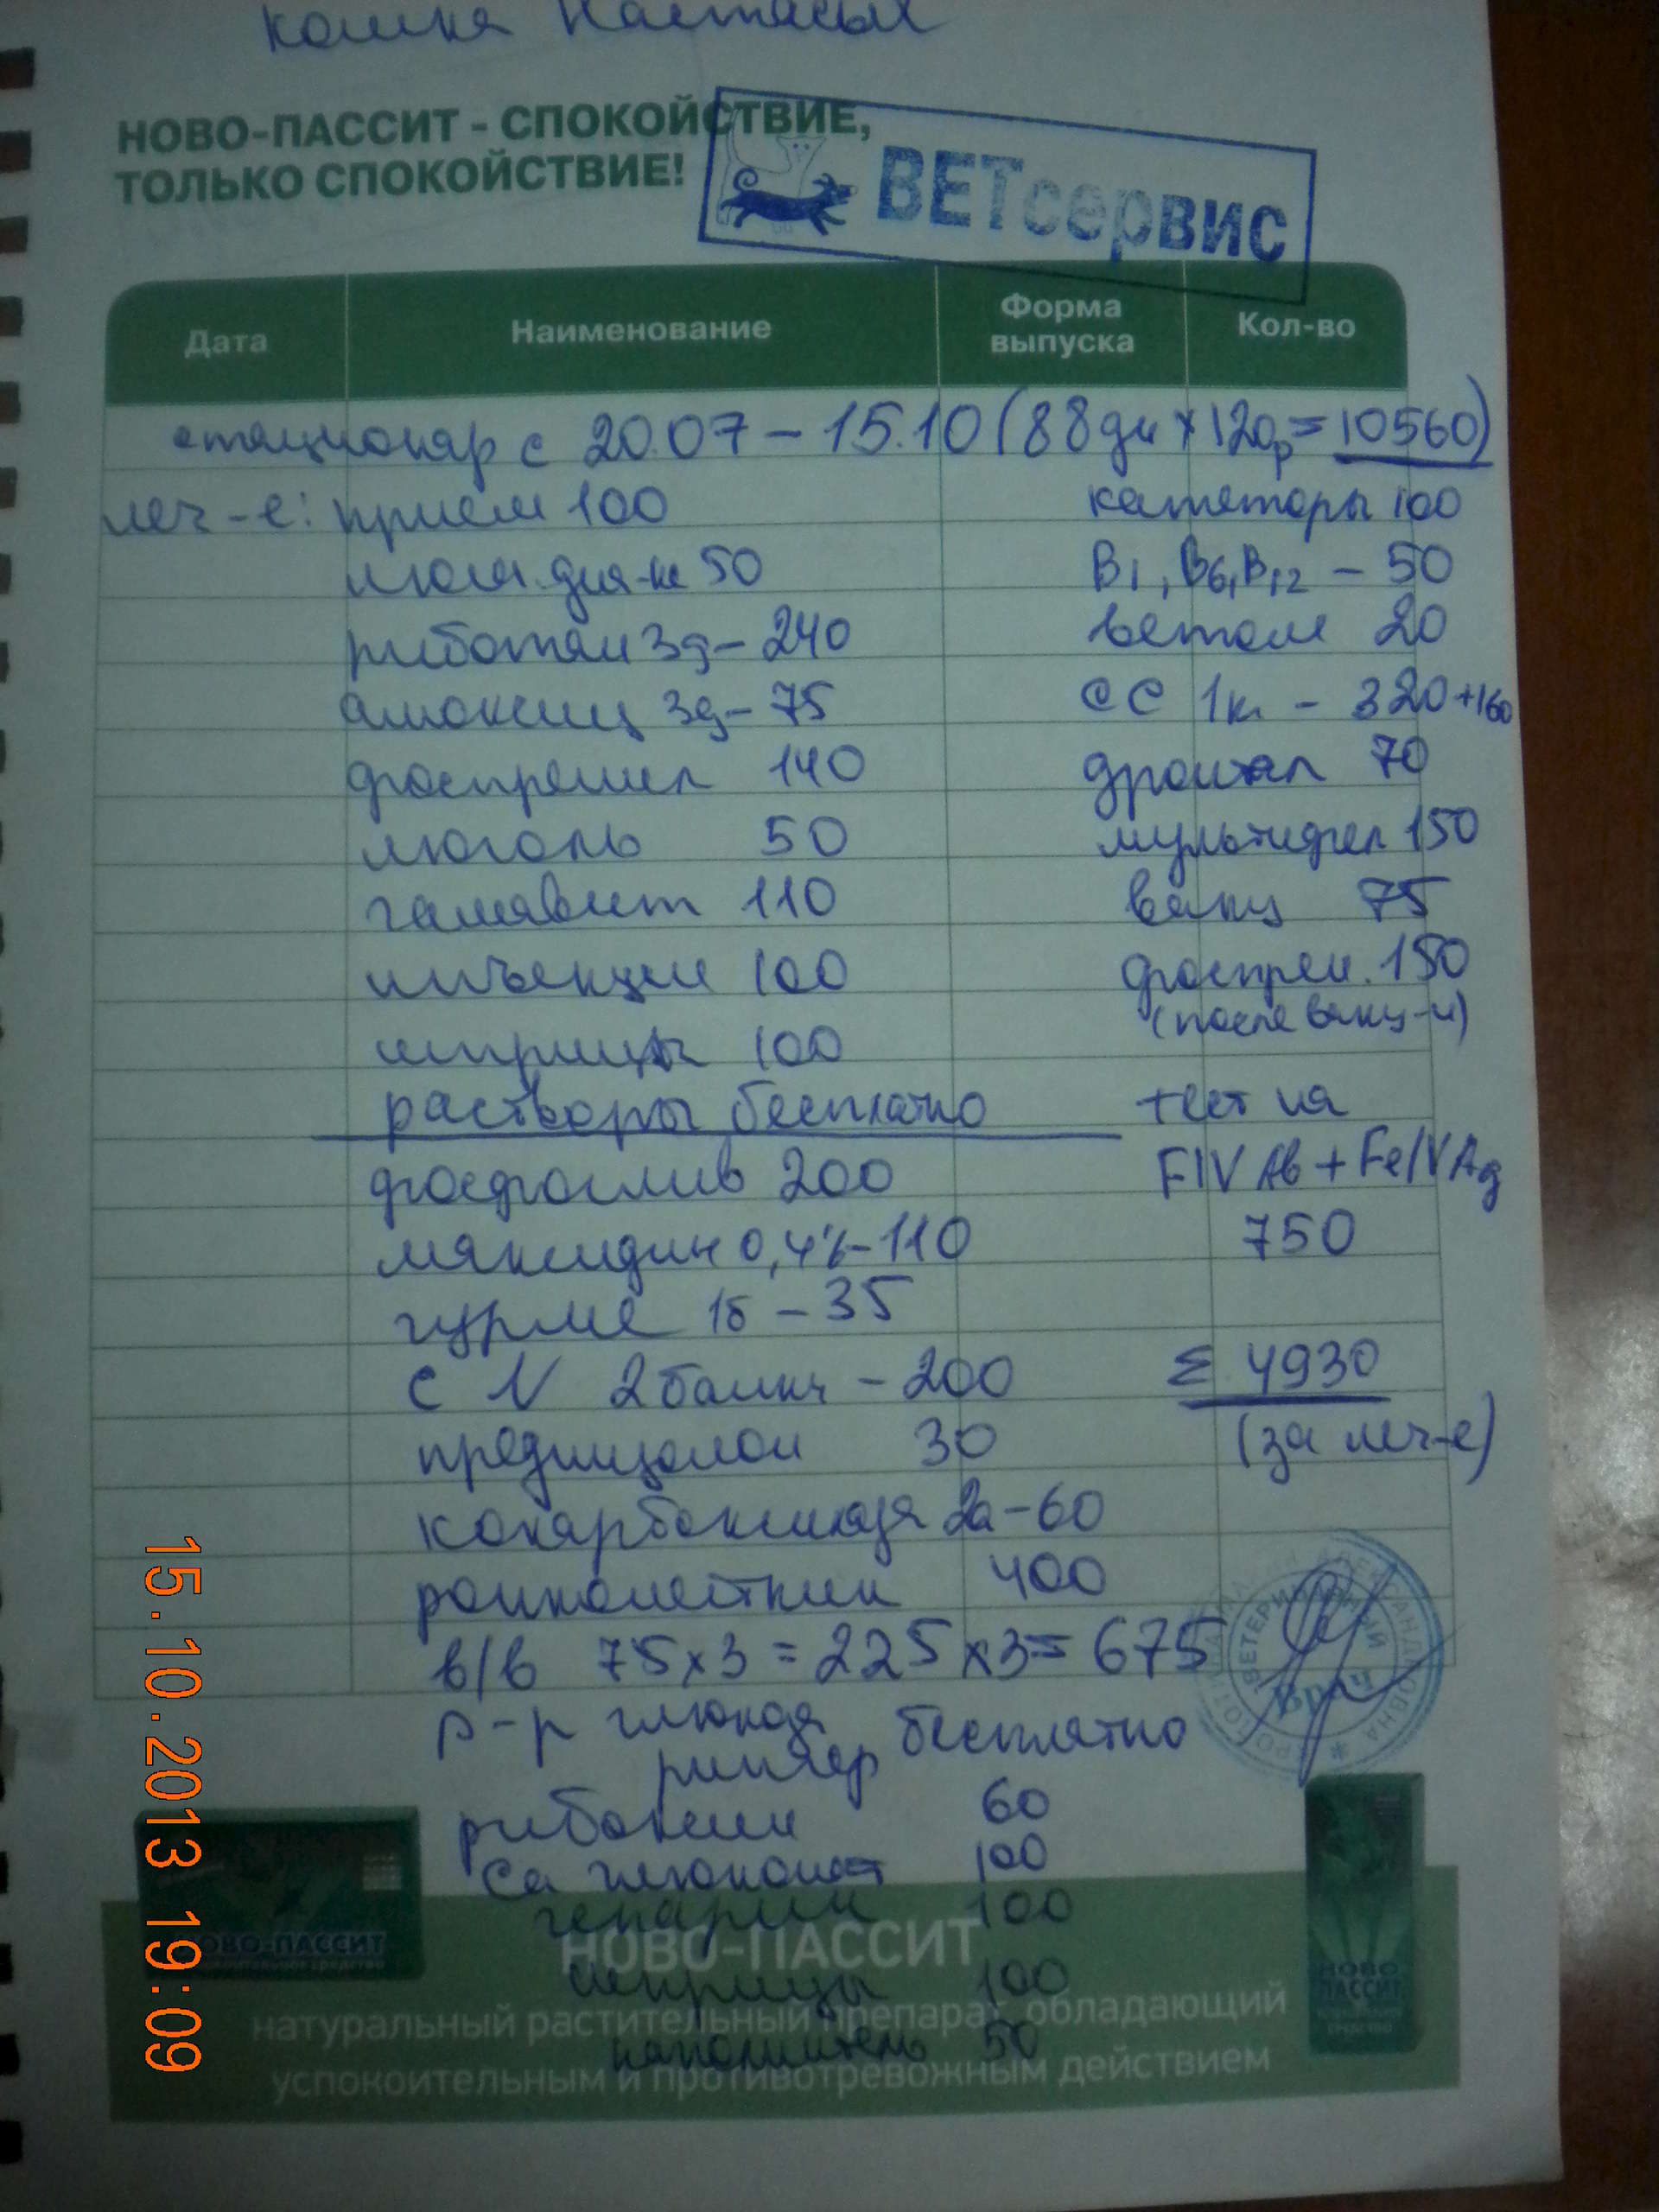 кошка Настасья
НОВО-ПАССИТ - СПОКОЙСТВИЕ,
ТОЛЬКО СПОКОЙСТВИЕ!
ВЕТсервис
Дата Наименование Форма выпуска Кол-во
стационар с 20.07 – 15.10 (88дн × 120р = 10560)
леч-е: прием 100 катетеры 100
люм. диа-ка 50 В1, В6, В12 – 50
риботан 3д – 240 ветом 20
амоксиц 3д – 75 СС 1кг – 320 + 160
фоспренил 140 дронтал 70
люголь 50 мультифел 150
гамавит 110 вакц 75
инъекции 100 фоспрен. 150
(после вакц-и)
шприцы 100
растворы бесплатно тест на
фосфоглив 200 FIV Ab + FeLV Ag
максидин 0,4% – 110 750
гурме 1б – 35
С N 2 банки – 200 Σ 4930
преднизолон 30 (за леч-е)
кокарбоксилаза 2а – 60
ронколейкин 400
в/в 75 × 3 = 225 × 3 = 675
р-р глюкоза
рингер бесплатно
рибоксин 60
Са глюконат 100
гепарин 100
шприцы 100
наполнитель 50
ВЕТЕРИНАРНЫЙ
Врач
НОВО-ПАССИТ
НОВО-ПАССИТ
натуральный растительный препарат, обладающий
успокоительным и противотревожным действием
НОВО
ПАССИТ
15.10.2013 19:09